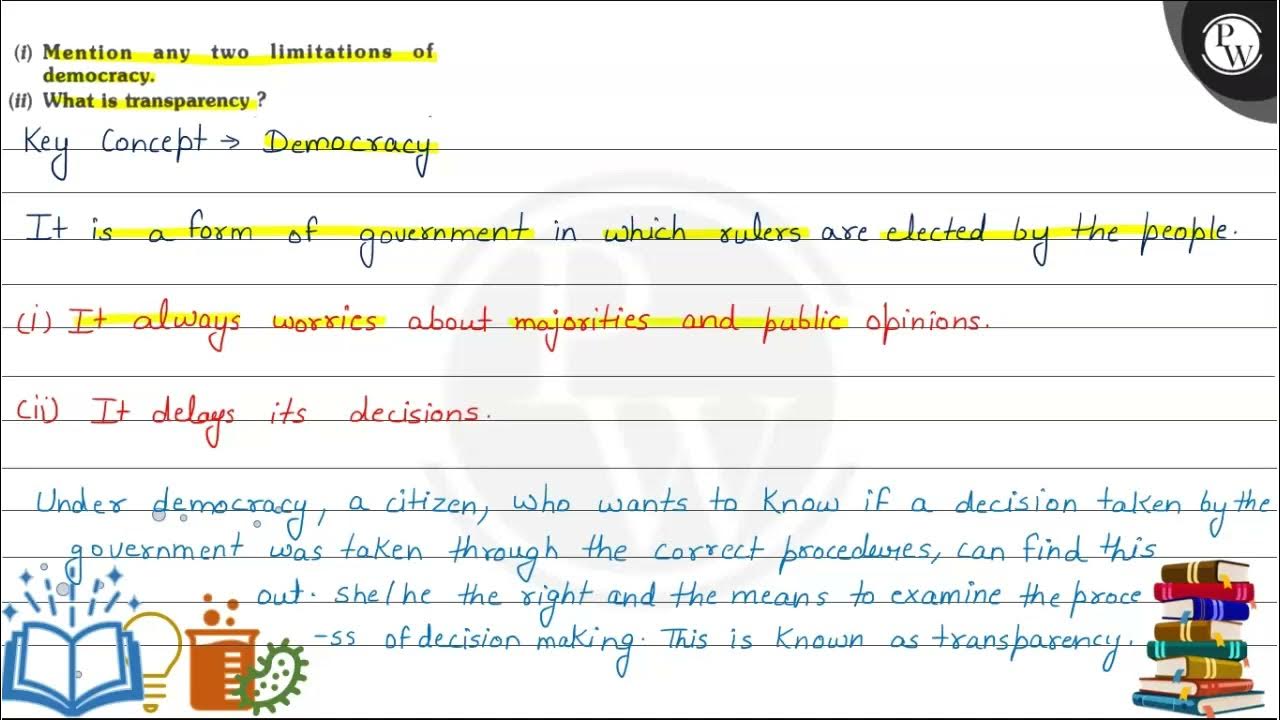 (i) Mention any two limitations of
democracy.
(ii) What is transparency ?
Key Concept → Democracy
It is a form of government in which rulers are elected by the people.
(i) It always worries about majorities and public opinions.
(ii) It delays its decisions.
Under democracy, a citizen, who wants to know if a decision taken by the
government was taken through the correct procedures, can find this
out. she/he the right and the means to examine the proce
-ss of decision making. This is known as transparency.
PW
PW